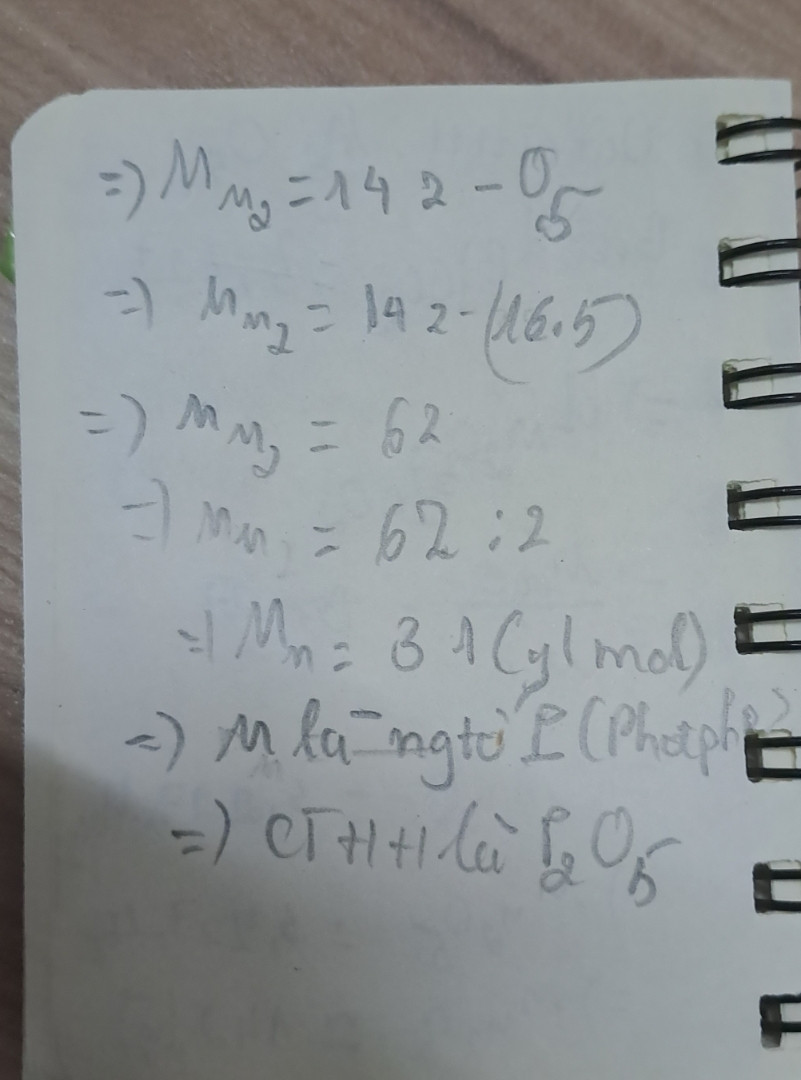 =) M M₂ = 142 - O₅
=) M M₂ = 142 - (16.5)
=) M M₂ = 62
=) M M = 62 : 2
=) M M = 31 (g/mol)
=) M là ngtố P (Photpho)
=) CTHH là P₂O₅